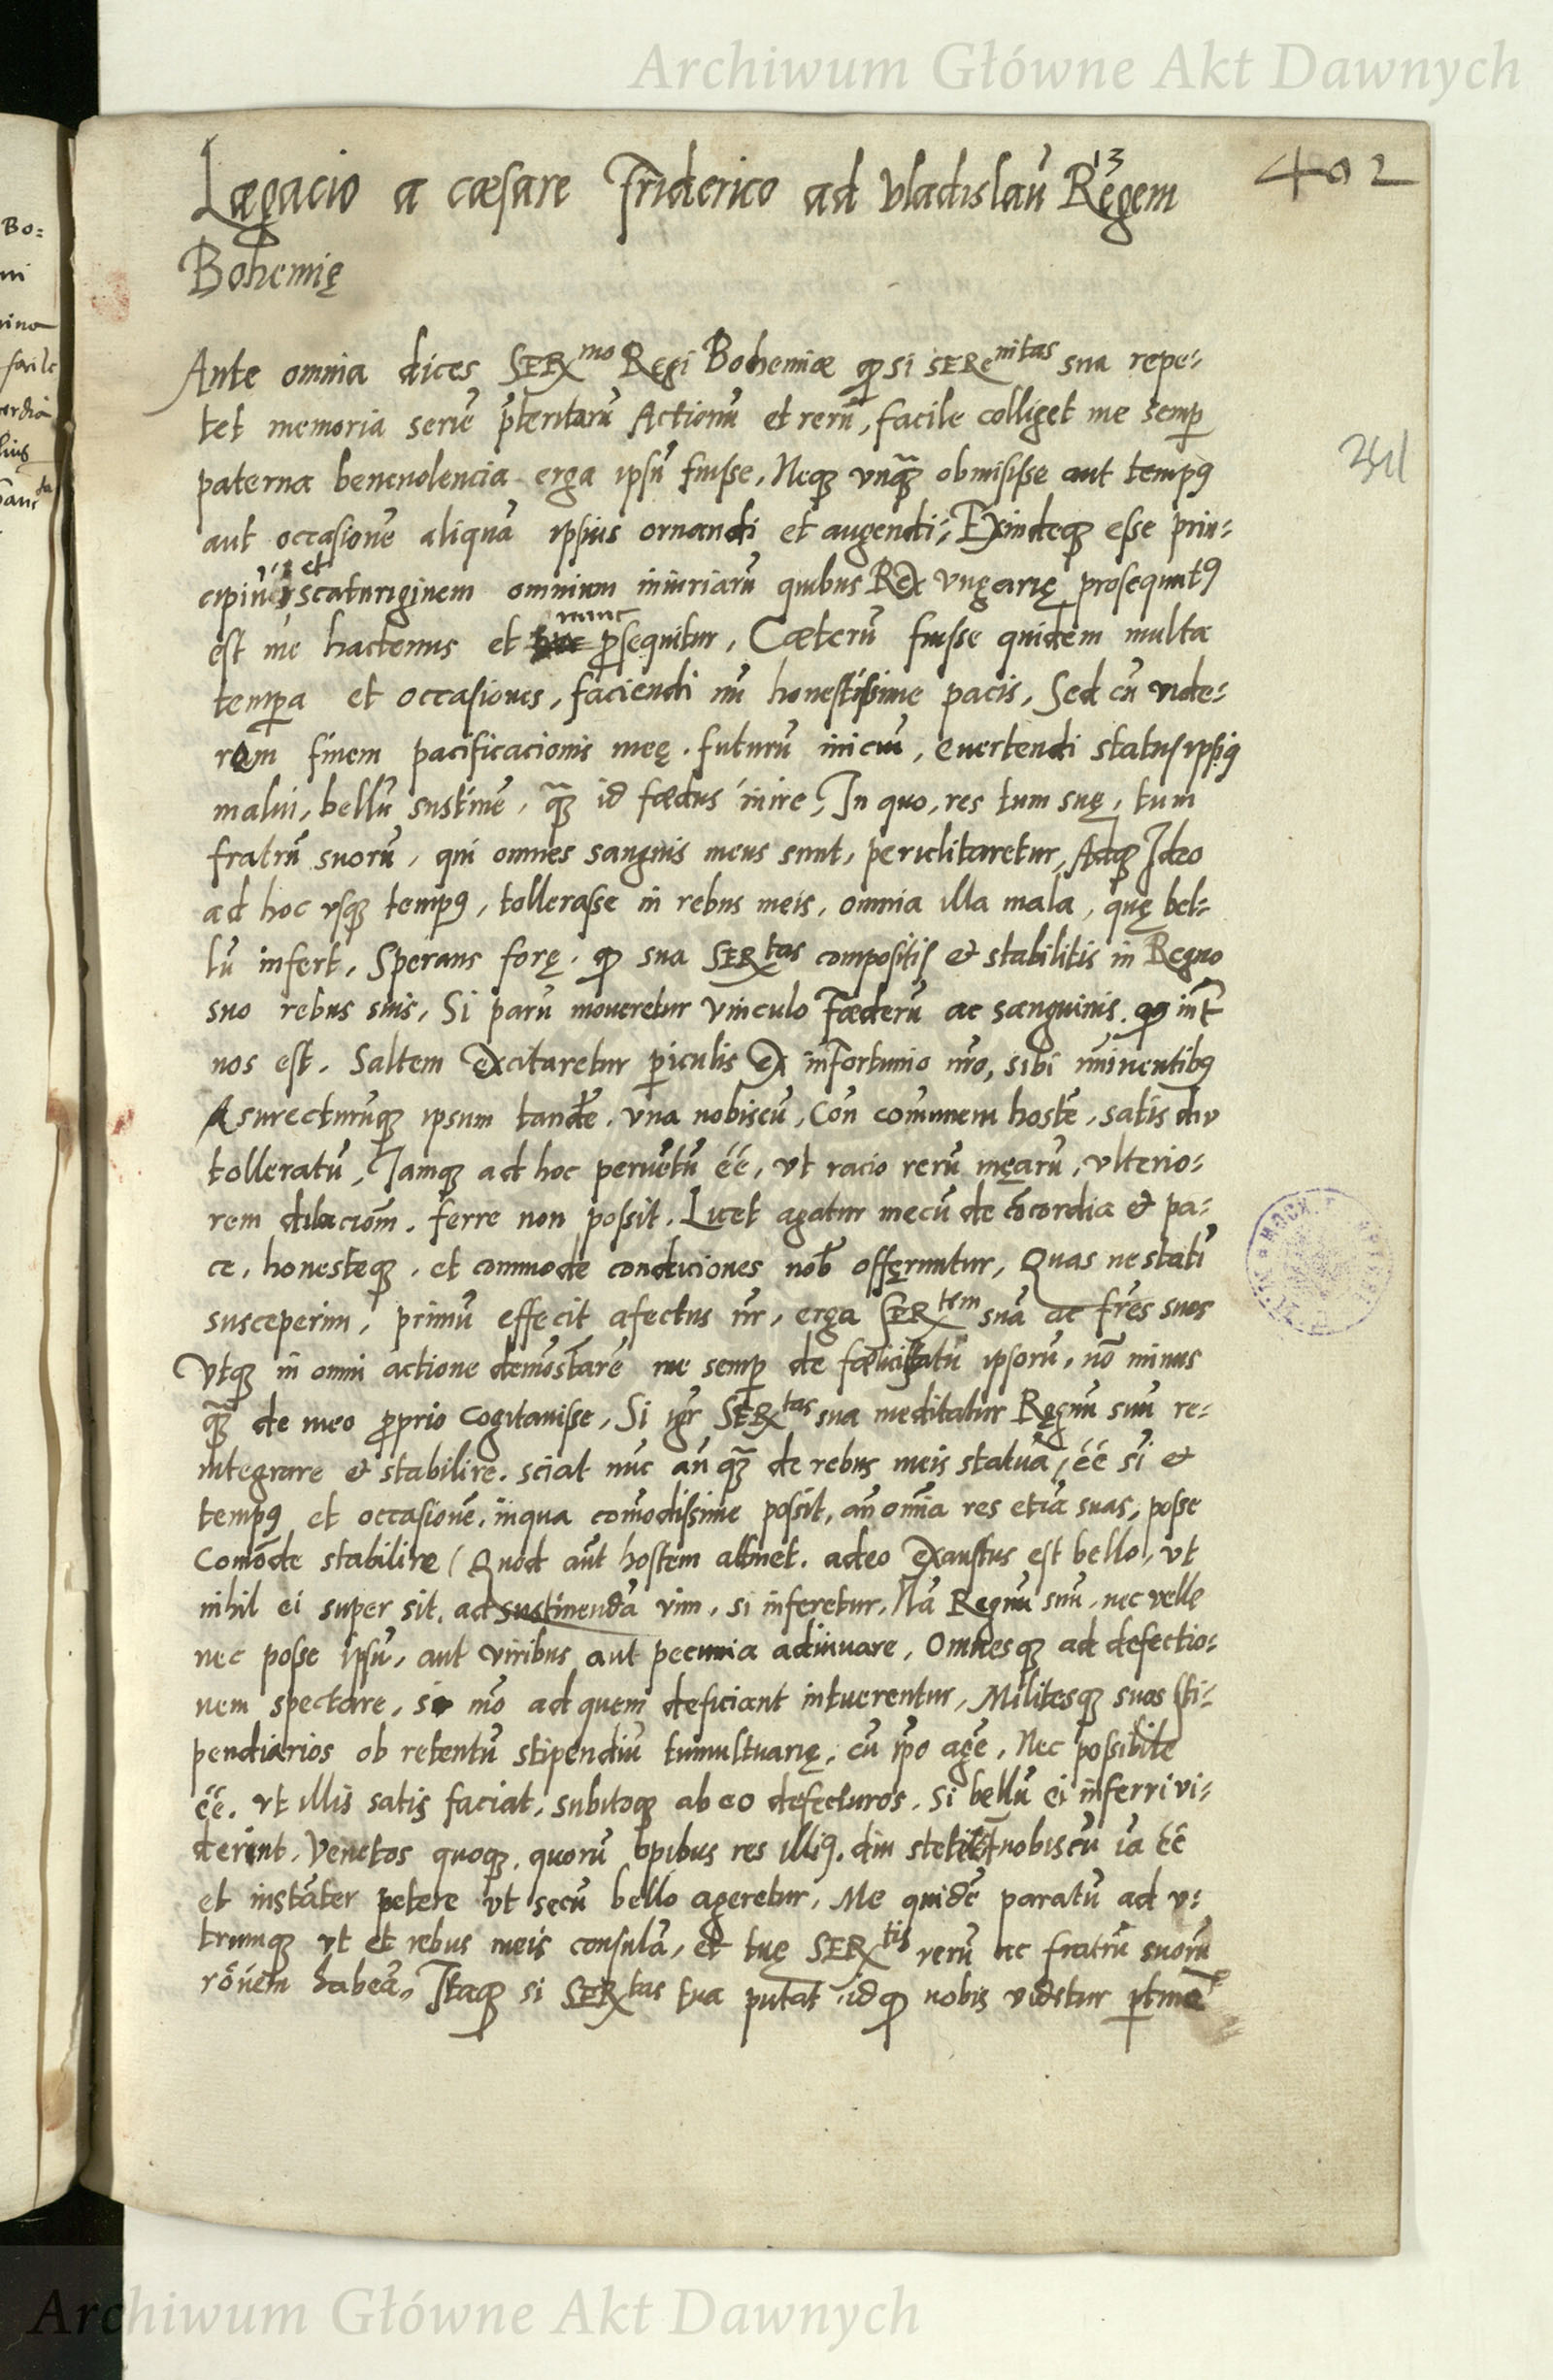 Archiwum Główne Akt Dawnych
13
402
Lęgacio a cæsare Friderico ad Vladislaū Regem
Bohemię
Ante omnia dices SERmo Regi Bohemiæ ꝙ si SERenitas sua repe-
tet memoria seriē p̄teritarū Actionū et rerū, facile colliget me semꝑ
paterna beneuolencia erga ipsū fuisse, Neqꝫ vnꝗ̃ obmisisse aut tempꝰ
aut occasionē aliquā ipsius ornandi et augendi, Exindeqꝫ esse prin-
cipiū et scaturiginem omnium iniuriarū quibus Rex Vngarię prosequutꝰ
est me hactenus et nunc ꝓsequitur, Cæterū fuisse quidem multa
temꝑa et occasiones, faciendi mī honestissime pacis, Sed cū vide-
ram finem pacificacionis meę. futurū iniciū, euertendi status ipsiꝰ
malui, bellū sustinē, ꝗ̃ id fœdus inire, In quo, res tum suę, tum
fratrū suorū, qui omnes sanguis meus sunt, periclitaretur, Adqꝫ Ideo
ad hoc vsqꝫ tempꝰ, tollerasse in rebus meis, omnia illa mala, quę bel-
lū infert, Sperans forę. ꝙ sua SERtas compositis et stabilitis in Regno
suo rebus suis, Si parū moueretur vinculo Fœderū ac sanguinis. ꝙ int̄
nos est. Saltem Excitaretur ꝑiculis Ex inFortunio n̄ro, sibi im̄inentibꝰ
Asurecturūqꝫ ipsum tandē. vna nobiscū, Con comunem hostē, satis diu
tolleratū, Iamqꝫ ad hoc peruētū éé, vt racio rerū męarū, vlterio-
rem dilacionē. ferre non possit. Licet agatur mecū de cōcordia et pa-
ce, honesteqꝫ. et commode condiciones nob̄ offęruntur, Quas ne statī
susceperim, primū effecit afectus n̄r, erga SERtem suā ac fr̄es suos
Vtqꝫ in omni actione demōstrarē me semꝑ de fœlicitatū ipsorū, nō minus
ꝗ̃ de meo ꝓprio cogitauisse, Si igr̄ SERtas sua meditatur Ręgnū suū re-
integrare et stabilire. sciat nūc anꝗ̃ de rebus meis statuā, éé si et
tempꝰ et occasionē, in qua comōdissime possit, an om̄ia res etiā suas, posse
Comōde stabilire (Quod aūt hostem attinet. adeo Exaustus est bello, vt
nihil ei super sit. ad sustinendā vim, si inferetur, Nā Regnū suū, nec velle
nec posse ipsū, aut viribus aut pecunia adiuuare, Omnesqꝫ ad defectio-
nem spectare, si mō ad quem deficiant intuerentur, Militesqꝫ suos sti-
pendiarios ob retentū stipendiū tumultuarię, cū ip̄o agē, Nec possibile
éé. vt illis satis faciat, subitoqꝫ ab eo defecturos, si bellū ei inferri vi-
derint, Venetos quoqꝫ. quorū opibus res illiꝰ. diu stetit nobiscū iā éé
et instāter petere vt secū bello ageretur, Me quidē paratū ad v-
trumqꝫ vt et rebus meis consulā, et tuę SERtis rerū ac fratrū suorū
rōnem habeā, Itaqꝫ si SERtas tua putat idꝙ nobis videtur
Archiwum Główne Akt Dawnych